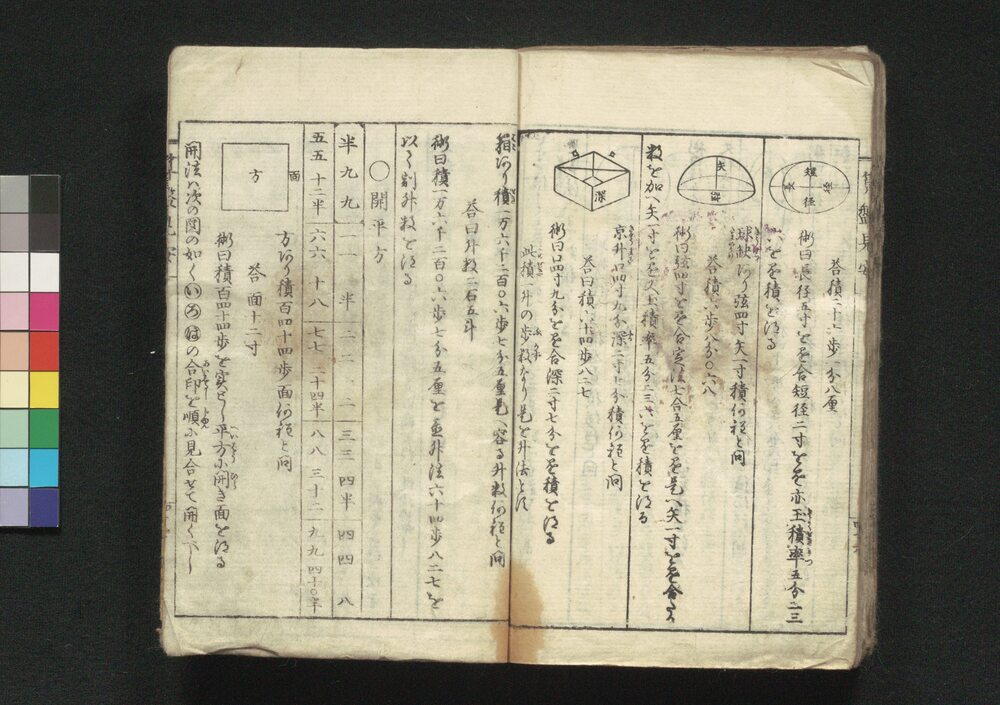 短
径
長
径
答積二十六歩一分八厘
術曰長径五寸とを合短径二寸とを亦玉積率五分二三
六とを積を得る
矢
弦
球缺あり弦四寸矢一寸積何程と問
答積六歩八分〇六八
数を加へ矢一寸をを又玉積率五分二三六とを積を得る
深
京升口四寸九分深二寸七分積何程と問
答曰積六十四歩八二七
術曰口四寸九分とを合深二寸七分とを積を得る
此積一升の歩数なり是を升法とす
箱あり積一万六千二百〇六歩七分五厘是へ容る升数何程と問
答曰升数二石五斗
術曰積一万六千二百〇六歩七分五厘を置升法六十四歩八二七を
以て割升数を得る
〇開平方
半九九 一一 半 二二 二 三三 四半 四四 八
五五 十二半 六六 十八 七七 二十四半 八八 三十二 九九 四十〇半
方
面
方あり積百四十四歩面何程と問
答 面十二寸
術曰積百四十四歩を実として平方に開き面を得る
開法は次の図の如くいろはの合印を順に見合せて開くべし